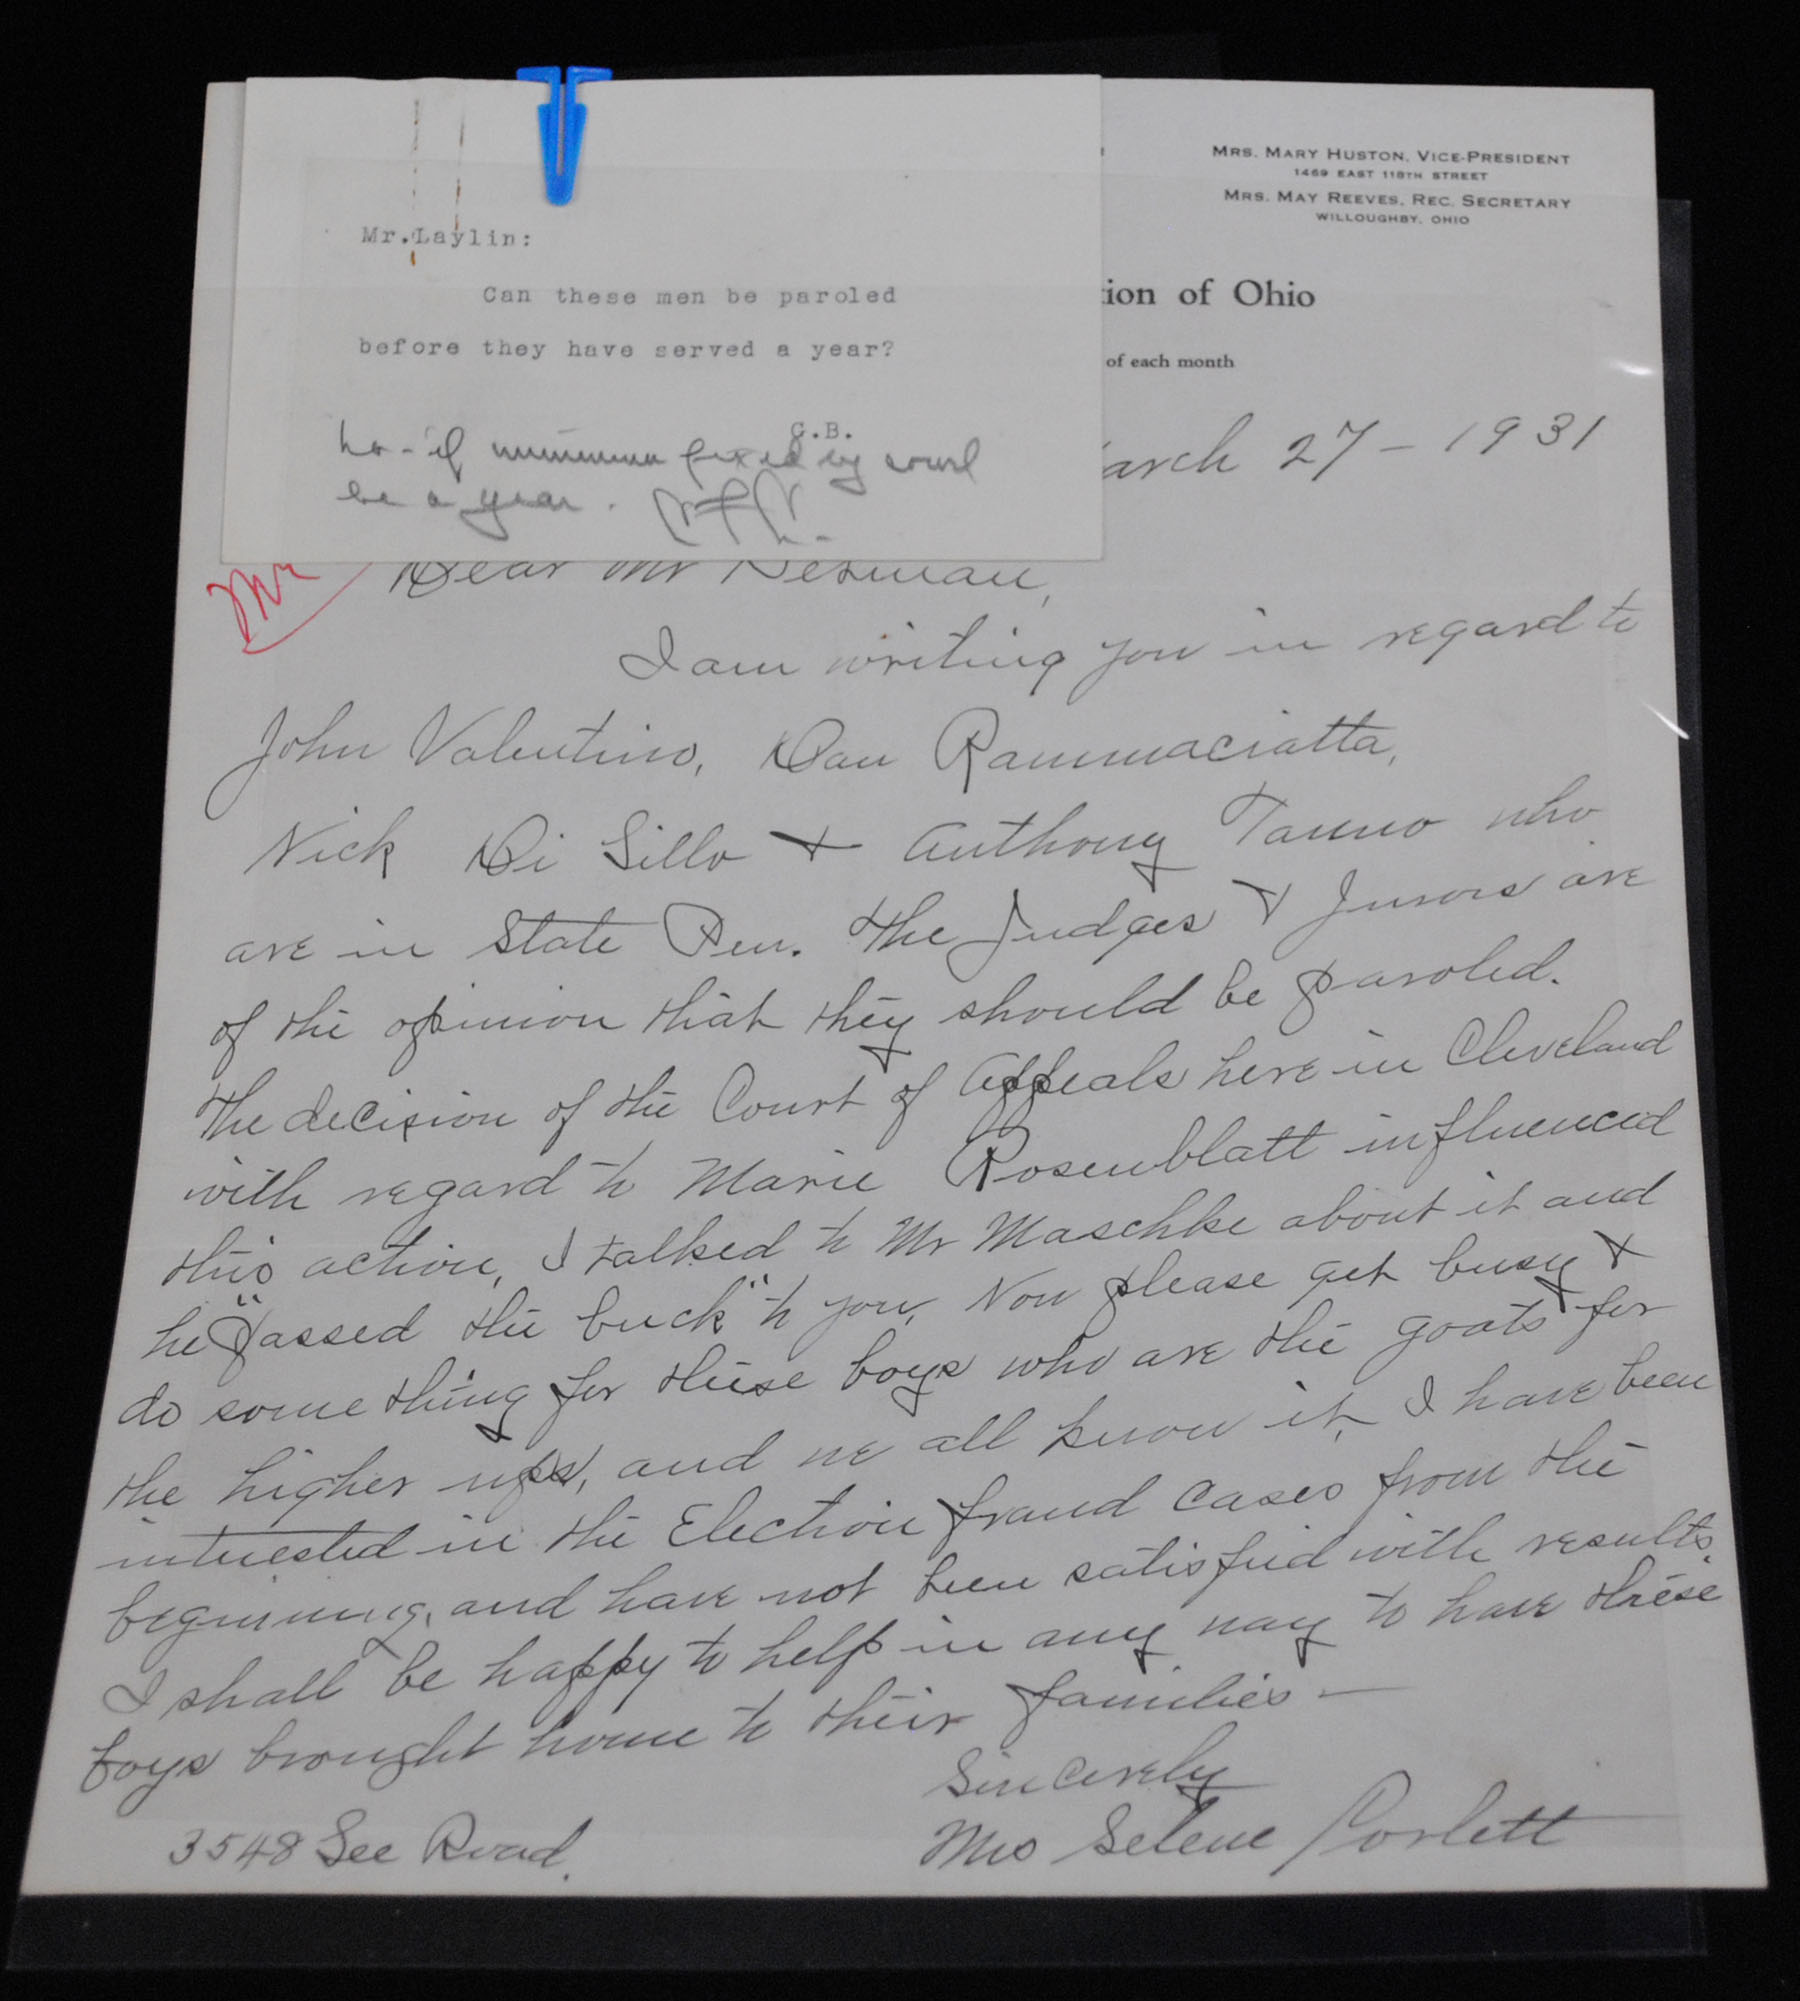 Mr. Laylin:
Can these men be paroled
before they have served a year?
G.B.
No - if minimum fixed by court
be a year.
MRS. MARY HUSTON, VICE-PRESIDENT
1469 EAST 118TH STREET
MRS. MAY REEVES, REC. SECRETARY
WILLOUGHBY, OHIO
tion of Ohio
of each month
arch 27 - 1931
Dear Mr
I am writing you in regard to
John Valentino, Dan Rammaciatta,
Nick Di Sillo & Anthony Tanno who
are in State Pen. The Judges & Jurors are
of the opinion that they should be paroled.
The decision of the Court of Appeals here in Cleveland
with regard to Marie Rosenblatt influenced
this action, I talked to Mr Maschke about it and
he "passed the buck" to you, Now please get busy &
do something for these boys who are the goats for
the higher ups, and we all know it, I have been
interested in the Election fraud cases from the
beginning, and have not been satisfied with results.
I shall be happy to help in any way to have these
boys brought home to their families —
Sincerely
Mrs Selene Corlett
3548 Lee Road.